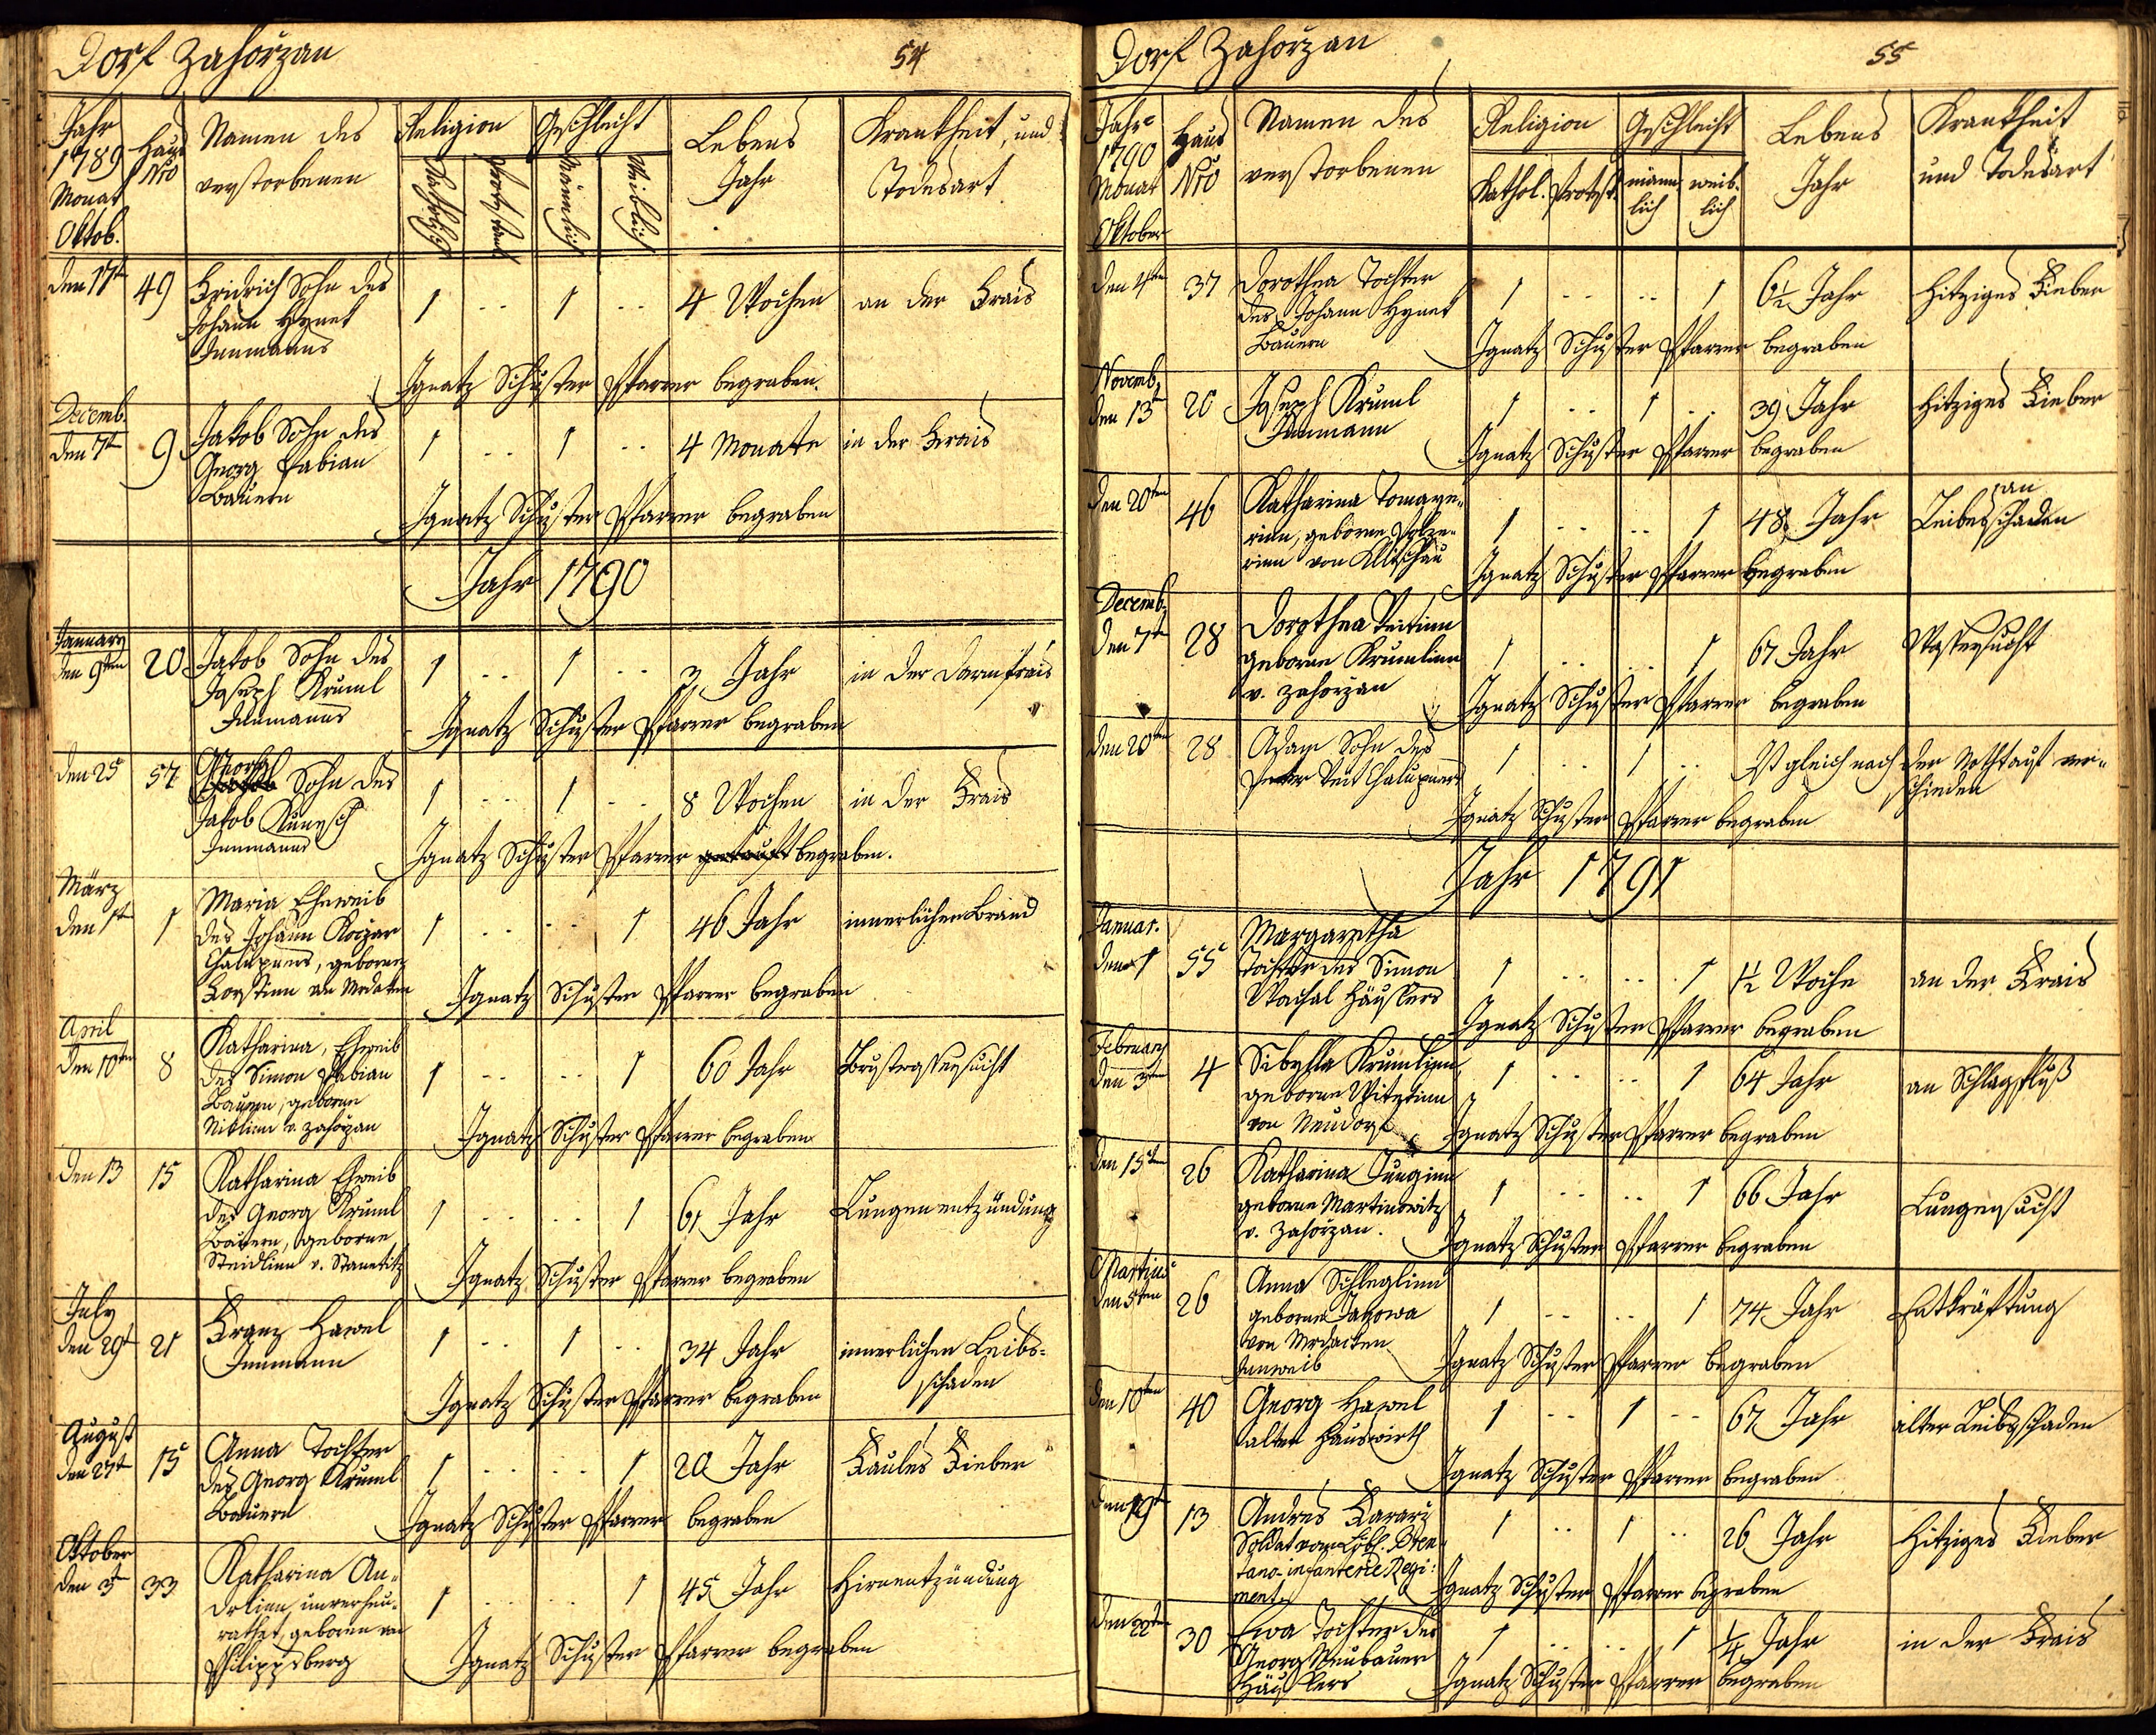 Dorf Zahoržan
54
Jahr
1789
Monat
Oktob.
Haus
Nro
Namen des
verstorbenen
Religion
Katholisch
Protestant
Geschlecht
Männlich
Weiblich
Lebens
Jahr
Krankheit, und
Todesart
den 17t
49
Fridrich Sohn des
Johann Hynek
Innmanns
1 .. 1 ..
4 Wochen
an der Frais
Ignatz Schuster Pfarrer begraben.
Decemb.
den 7t
9
Jakob Sohn des
Georg Fabian
Bauern
1 .. 1 ..
4 Monate
in der Frais
Ignatz Schuster Pfarrer begraben
Jahr 1790
January
den 9ten
20
Jakob Sohn des
Joseph Kruml
Innmanns
1 .. 1 ..
3 Jahr
in der Darmfrais
Ignatz Schuster Pfarrer begraben
den 25
57
Georg
Sohn des
Jakob Kunesch
Innmanns
1 .. 1 ..
8 Wochen
in der Frais
Ignatz Schuster Pfarrer getauft begraben.
März
den 1t
1
Maria Eheweib
des Johann Koczar
Chalupners, geborne
aus Mrdaken
1 .. .. 1
46 Jahr
innerlichen Brand
Ignatz Schuster Pfarrer begraben
April
den 10ten
8
Katharina, Eheweib
des Simon Fabian
Bauern, geborne
Niklin v. Zahoržan
1 .. .. 1
60 Jahr
Brustwassersucht
Ignatz Schuster Pfarrer begraben
den 13
15
Katharina Eheweib
des Georg Kruml
Bauern, geborne
Steidlin v. Stanetitz
1 .. .. 1
61 Jahr
Lungenentzündung
Ignatz Schuster Pfarrer begraben
July
den 29t
21
Franz Hawel
Innmann
1 .. 1 ..
34 Jahr
innerlichen Leibs-
schaden
Ignatz Schuster Pfarrer begraben
August
den 27t
15
Anna Tochter
des Georg Kruml
Bauern
1 .. .. 1
20 Jahr
Faules Fieber
Ignatz Schuster Pfarrer begraben
Oktober
den 3t
33
Katharina An-
drlinn, unverheu-
rathet, geboren von
Philippsberg
1 .. .. 1
45 Jahr
Hirnentzündung
Ignatz Schuster Pfarrer begraben
Dorf Zahoržan
55
Jahr
1790
Monat
Oktober
Haus
Nro
Namen des
verstorbenen
Religion
Kathol. Protest.
Geschlecht
männ-
lich
weib-
lich
Lebens
Jahr
Krankheit
und Todesart
den 4ten
37
Dorothea Tochter
des Johann Hynek
Bauern
1 .. .. 1
6½ Jahr
Hitziges Fieber
Ignatz Schuster Pfarrer begraben
Novemb.
den 13t
20
Joseph Kruml
Innmann
1 .. 1 ..
39 Jahr
Hitziges Fieber
Ignatz Schuster Pfarrer begraben
den 20ten
46
Katharina
geborne
von Klitschau
1 .. .. 1
48 Jahr
an
Leibesschaden
Ignatz Schuster Pfarrer begraben
Decemb.
den 7t
28
Dorothea Veitinn
geborne Krumlinn
v. Zahoržan
1 .. .. 1
67 Jahr
Wassersucht
Ignatz Schuster Pfarrer begraben
den 20ten
28
Adam Sohn des
Peter Veit Chalupners
1 .. 1 ..
Ist gleich nach der Nothtauf ver-
schieden
Ignatz Schuster Pfarrer begraben
Jahr 1791
Januar.
den 1
55
Margaretha
Tochter des Simon
Wachal Häuslers
1 .. .. 1
1½ Woche
an der Frais
Ignatz Schuster Pfarrer begraben
February
den 3ten
4
Sibylla Krumlinn
geborne
von Neudorf
1 .. .. 1
64 Jahr
an Schlagfluß
Ignatz Schuster Pfarrer begraben
den 15ten
26
Katharina
geborne Martinowitz
v. Zahoržan.
1 .. .. 1
66 Jahr
Lungensucht
Ignatz Schuster Pfarrer begraben
Martzius
den 5ten
26
Anna Schleglinn
geborne Janowa
von Mrdacken
Innweib
1 .. .. 1
74 Jahr
Entkräftung
Ignatz Schuster Pfarrer begraben
den 10ten
40
Georg Hawel
alter Hauswirth
1 .. 1 ..
67 Jahr
alter Leibsschaden
Ignatz Schuster Pfarrer begraben
den 19t
13
Andres
Soldat vom Löbl. Bren-
tano-infanterie Regi-
ment
1 .. 1 ..
26 Jahr
Hitziges Fieber
Ignatz Schuster Pfarrer begraben
den 22ten
30
Ewa Tochter des
Georg Neubauer
Häuslers
1 .. .. 1
¼ Jahr
in der Frais
Ignatz Schuster Pfarrer begraben